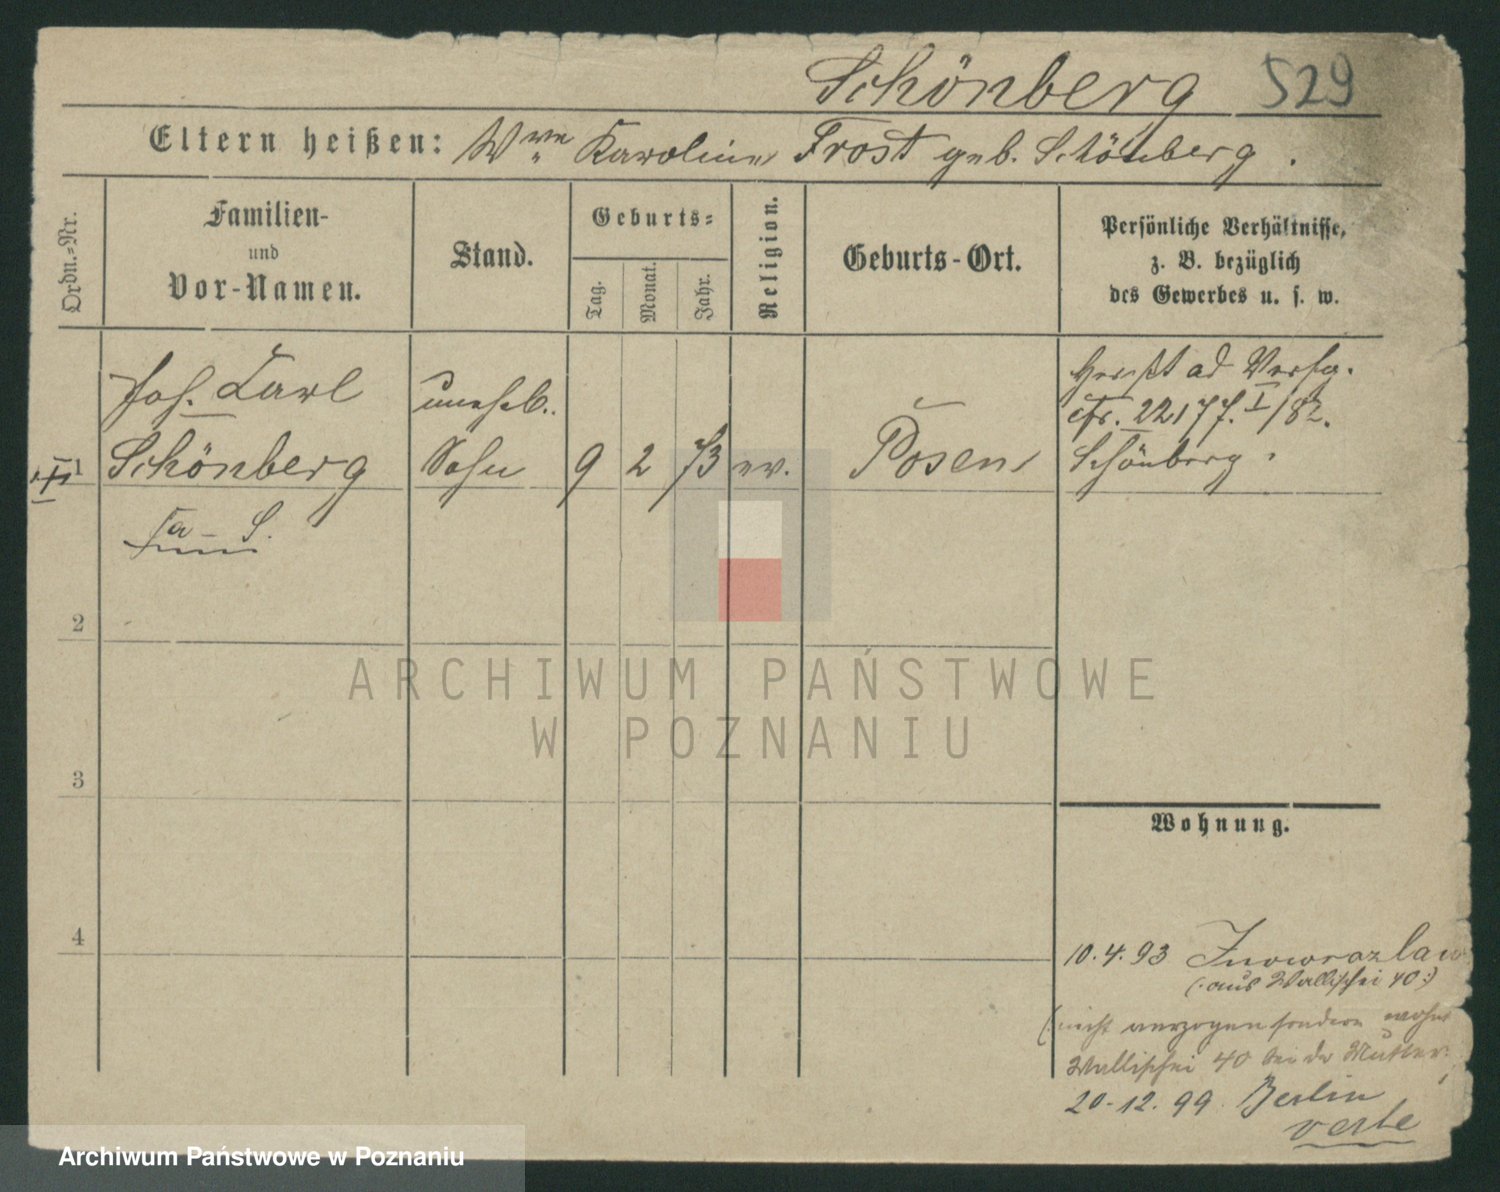 Schönberg 529
Eltern heißen: Wwe Karoline Frost geb. Schönberg.
Ordn.-Nr.
Familien-
und
Vor-Namen.
Stand.
Geburts-
Tag.
Monat.
Jahr.
Religion.
Geburts-Ort.
Persönliche Verhältnisse,
z. B. bezüglich
des Gewerbes u. s. w.
1
Joh. Carl
Schönberg
unehel.
Sohn
9 2 73 ev.
Posen
ad Verfg.
cfr. 22177. I/82.
Schönberg.
2
3
4
Wohnung.
10.4.93 Inowrazlaw
(: aus Wallischei 40 :)
(: nicht verzogen sondern wohnt
Wallischei 40 bei der Mutter
20.12.99 Berlin
verte
ARCHIWUM PAŃSTWOWE
W POZNANIU
Archiwum Państwowe w Poznaniu